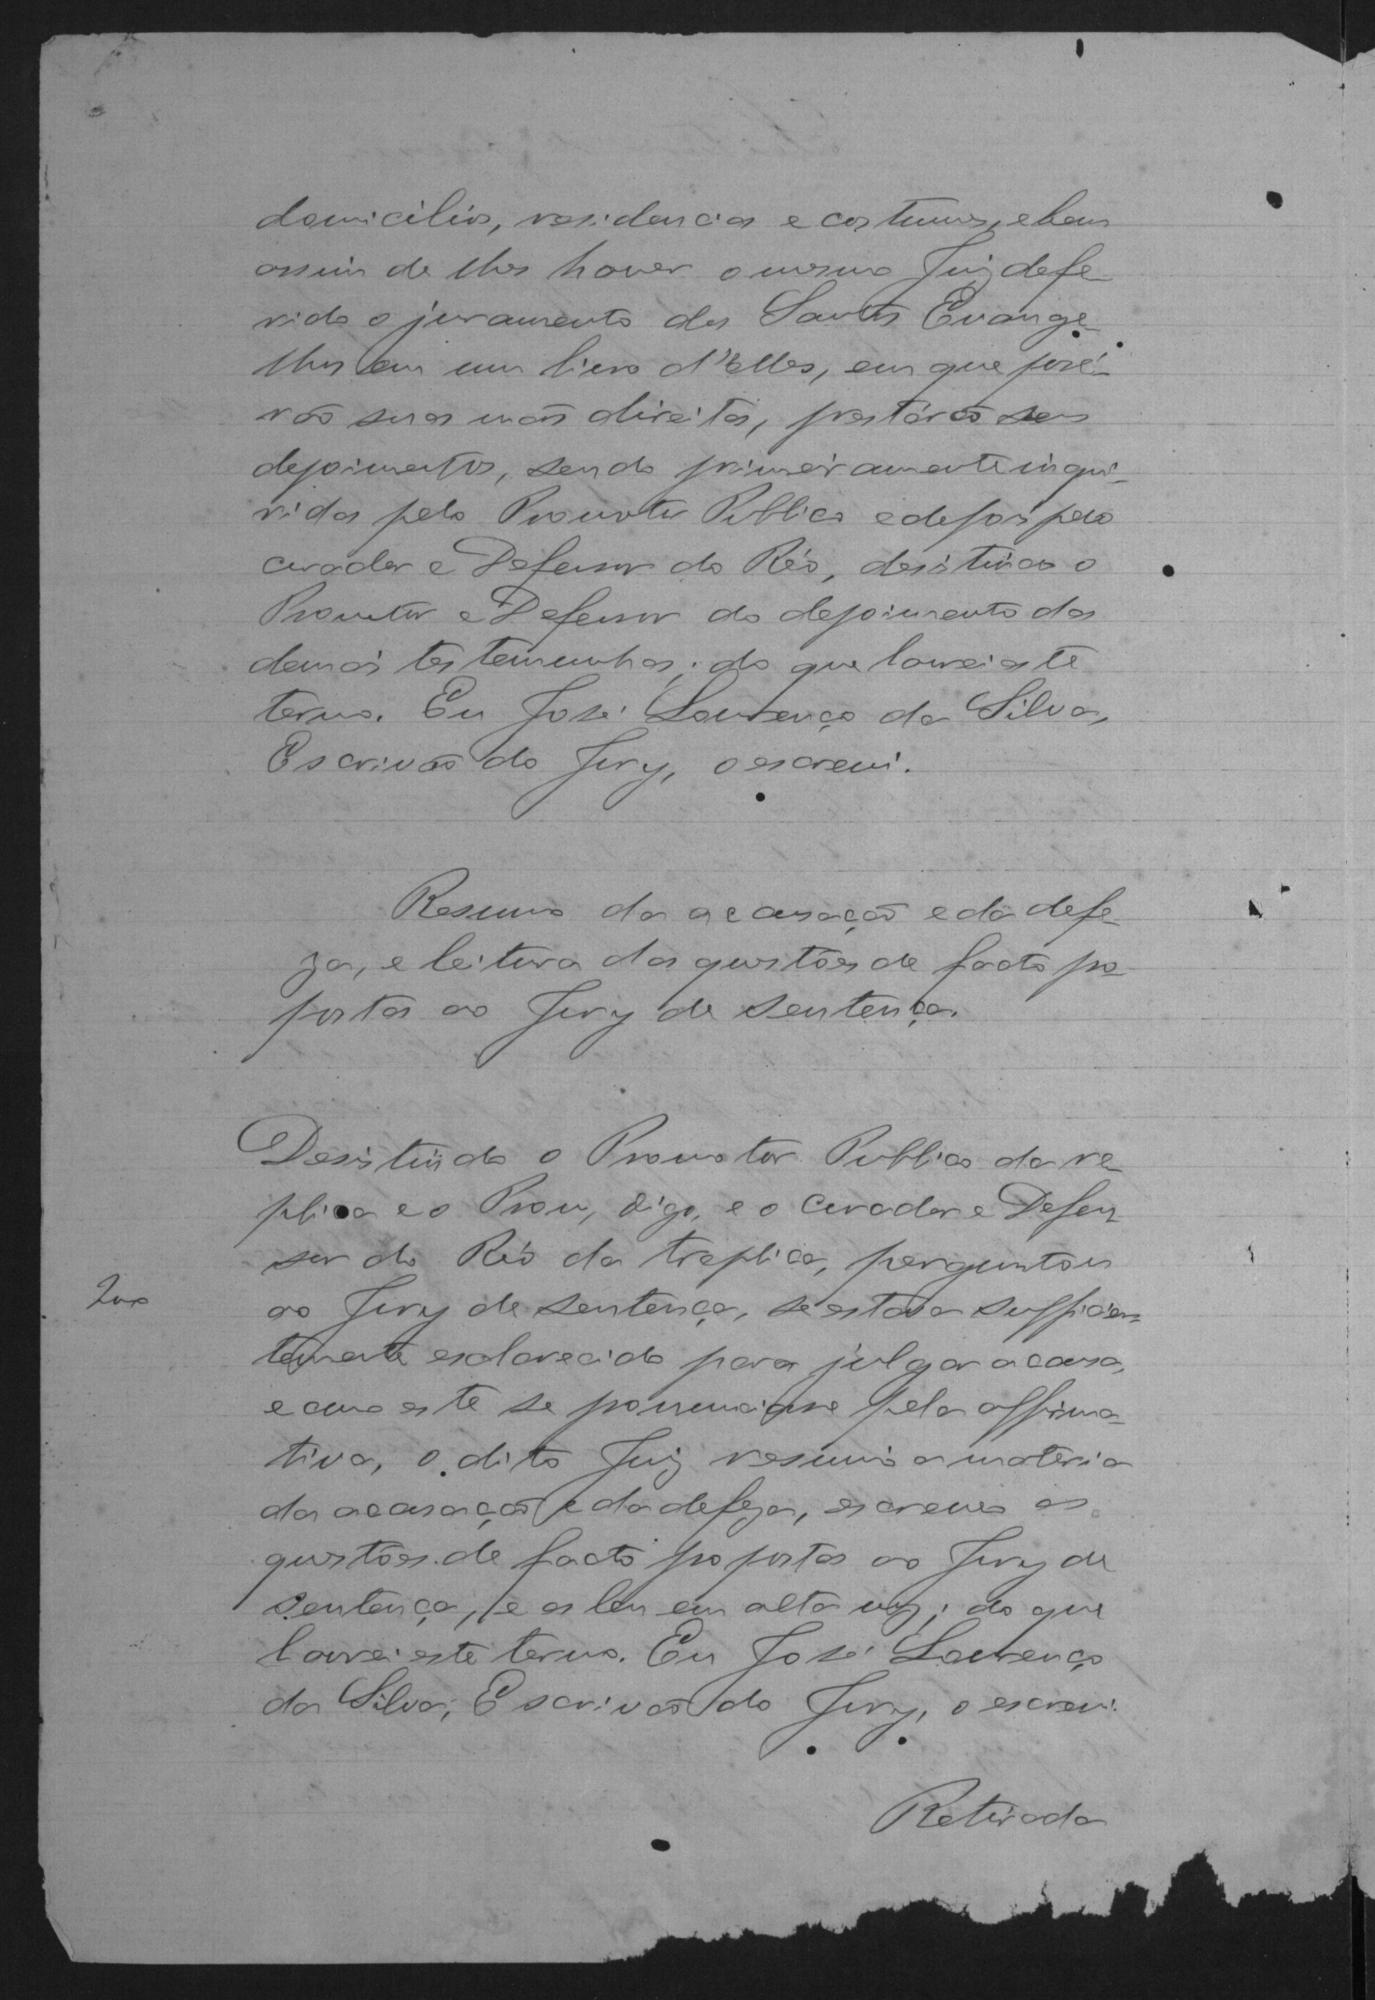 domicilios, residencias e costumes, e bem
assim de lhes haver o mesmo Juiz defe-
rido o juramento dos Santos Evange-
lhos em um livro d'elles, em que pozé-
rão suas mãos direitas, prestárão seus
depoimentos, sendo primeiramente inqui-
ridas pelo Promotor Publico e depois pelo
curador e Defensor do Réo, desistindo o
Promotor e Defensor do depoimento das
demais testemunhas; do que lavrei este
termo. Eu José Lourenço da Silva,
Escrivão do Jury, o escrevi.
Resumo da accusação e da defe-
za, e leitura das questões de facto pro-
postas ao Jury de sentença.
Desistindo o Promotor Publico da re-
plica e o Prom, digo, e o Curador e Defen-
sor do Réo da treplica, perguntou
ao Jury de sentença, se estava sufficien-
temente esclarecido para julgar a causa,
e como este se pronunciasse pela affirma-
tiva, o dito Juiz resumio a materia
da accusação e da defeza, escreveo as
questões de facto propostas ao Jury de
sentença, e as leu em alta voz; do que
lavrei este termo. Eu José Lourenço
da Silva, Escrivão do Jury, o escrevi.
Retirada